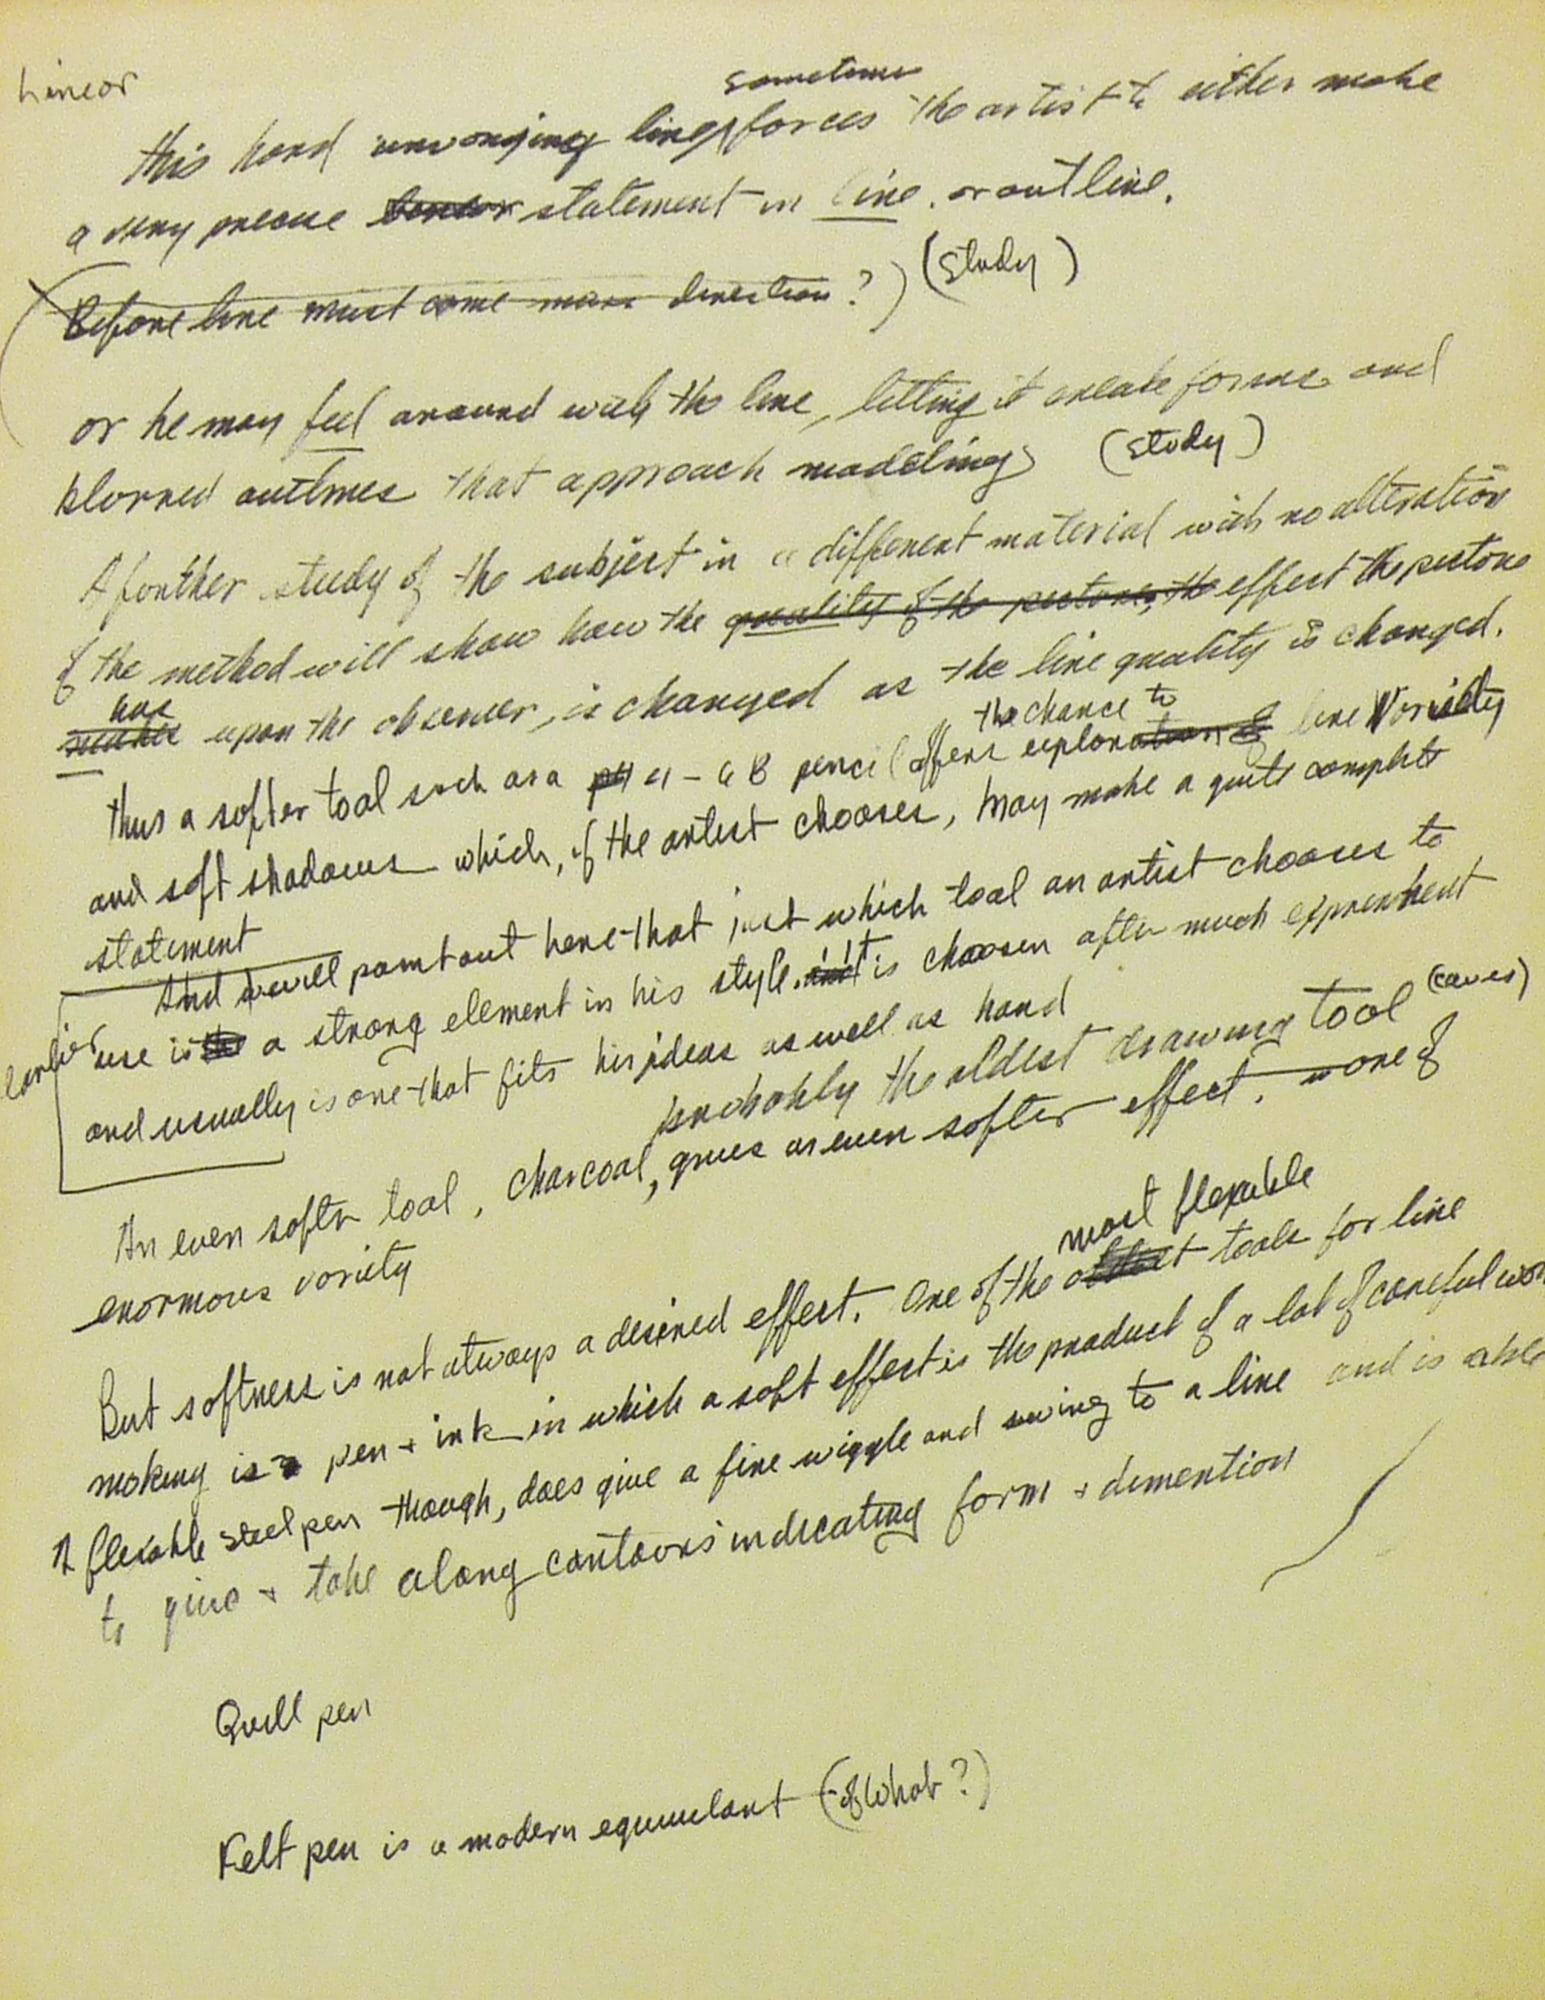 Linear
sometimes
this hard unvarying line forces the artist to either make
a very precise linear statement in line. or outline.
(Before line must come mass direction?) (study)
or he may feel around with the line, letting it create forms and
blurred outlines that approach modeling (study)
A further study of the subject in a different material with no alteration
of the method will show how the quality of the picture, the effect the picture
has
makes upon the observer, is changed as the line quality is changed.
the chance to
thus a softer tool such as a 4 - 6 B pencil offers exploration of line Variety
and soft shadows which, if the artist chooses, may make a quite complete
statement
And I will point out here that just which tool an artist chooses to
earlier use is a strong element in his style. it is choosen after much experiment
and usually is one that fits his ideas as well as hand
probably the oldest drawing tool (caves)
An even softer tool, charcoal, gives an even softer effect. one of
enormous variety
most flexable
But softness is not always a desired effect. One of the oldest tools for line
making is pen + ink in which a soft effect is the product of a lot of careful work
A flexable steel pen though, does give a fine wiggle and swing to a line and is able
to give + take along contours indicating form + dimention
Quill pen
Felt pen is a modern equivulant (of what?)